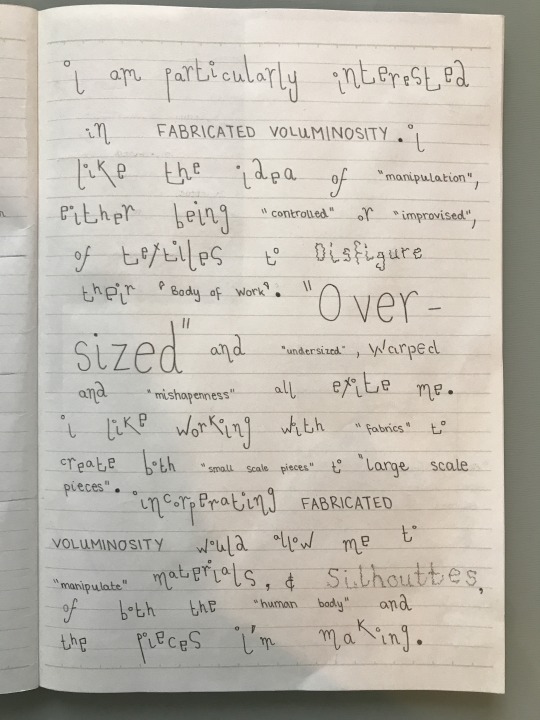 i am particularly interested
in FABRICATED VOLUMINOSITY. i
like the idea of "manipulation",
either being "controlled" or "improvised",
of textiles to Disfigure
their "Body of work". "Over-
sized" and "undersized", warped
and "mishapenness" all exite me.
i like working with "fabrics" to
create both "small scale pieces" to "large scale
pieces". incorperating FABRICATED
VOLUMINOSITY would allow me to
"manipulate" materials, & Silhouttes,
of both the "human body" and
the pieces i'm making.